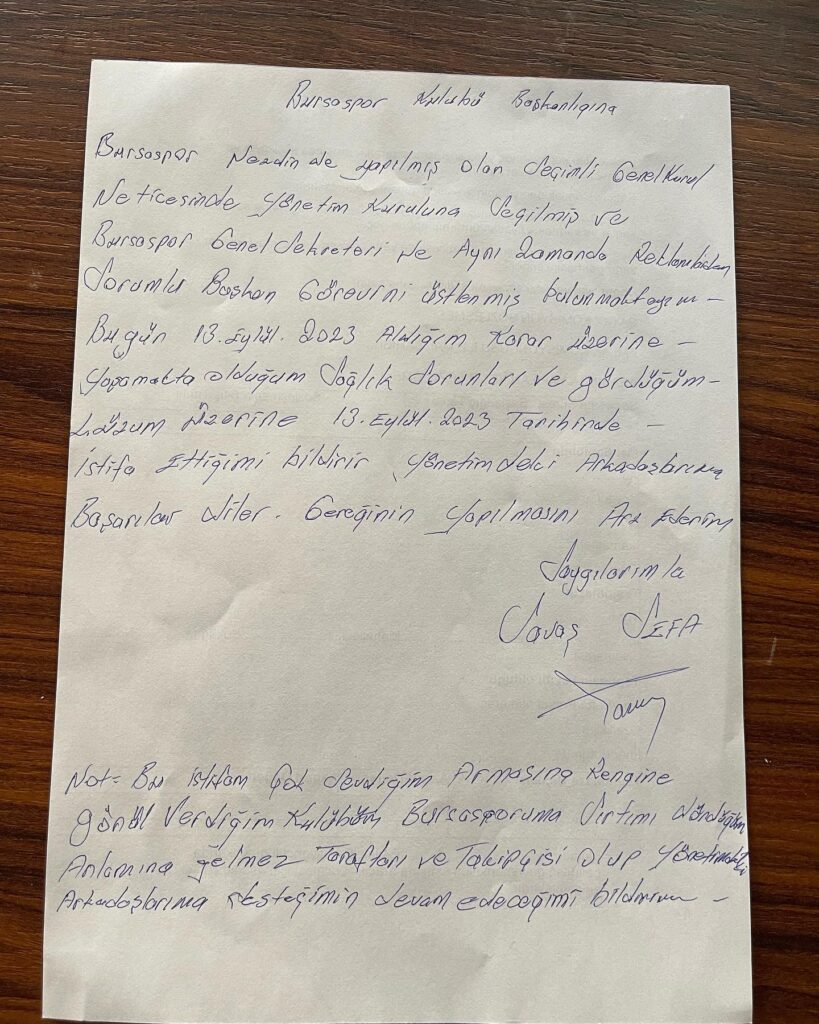 Bursaspor Kulubü Başkanlıgına
Bursaspor Nezdinde yapılmış olan Seçimli Genel Kurul
Neticesinde Yönetim Kuruluna Seçilmiş ve
Bursaspor Genel Sekreteri ve Aynı Zamanda
Sorumlu Başkan Görevini üstlenmiş bulunmaktayım -
Bugün 13. Eylül. 2023 Aldığım Karar üzerine -
Yaşamakta olduğum Sağlık Sorunları ve gördüğüm -
Lüzum üzerine 13. Eylül. 2023 Tarihinde -
İstifa Ettiğimi bildirir Yönetimdeki Arkadaşlarıma
Başarılar diler. Gereğinin Yapılmasını Arz Ederim
Saygılarımla
Savaş SEFA
Not= Bu istifam Çok Sevdiğim Armasına Rengine
gönül Verdiğim Kulübüm Bursasporuma Sırtımı döndüğüm
Anlamına gelmez Taraftarı ve Takipçisi olup Yönetimdeki
Arkadaşlarıma desteğimin devam edeceğimi bildiririm -